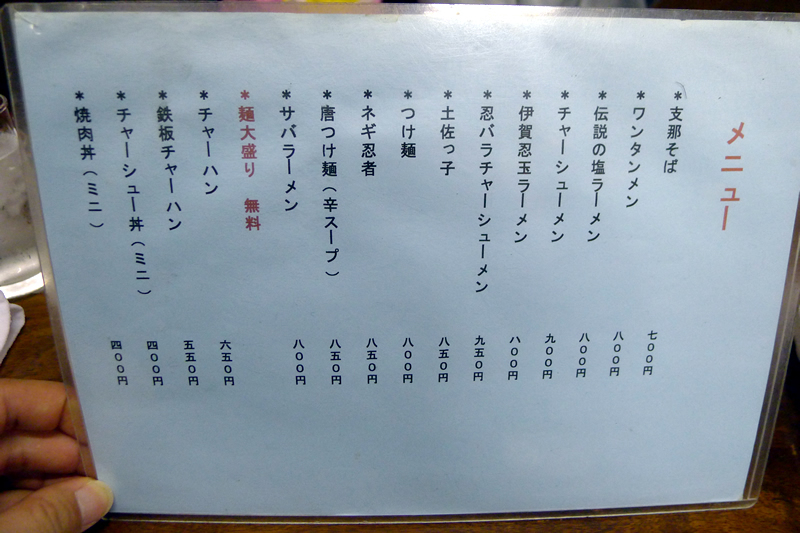 メニュー
＊支那そば 七００円
＊ワンタンメン 八００円
＊伝説の塩ラーメン 八００円
＊チャーシューメン 九００円
＊伊賀忍玉ラーメン 八００円
＊忍バラチャーシューメン 九五０円
＊土佐っ子 八五０円
＊つけ麺 八００円
＊ネギ忍者 八五０円
＊唐つけ麺（辛スープ） 八五０円
＊サバラーメン 八００円
＊麺大盛り　無料
＊チャーハン 六五０円
＊鉄板チャーハン 五五０円
＊チャーシュー丼（ミニ） 四００円
＊焼肉丼（ミニ） 四００円